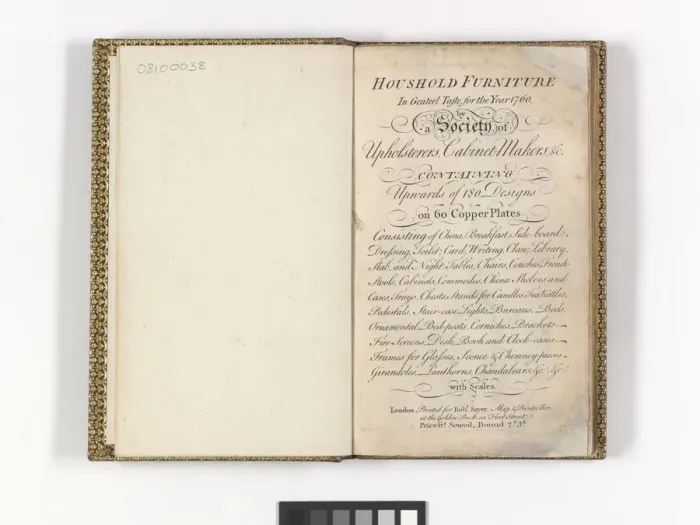 08100038
HOUSHOLD FURNITURE
In Genteel Taste for the Year 1760.
by
a Society of
Upholsterers, Cabinet-Makers, &c.
CONTAINING
Upwards of 180 Designs
on 60 Copper Plates.
Consisting of China, Breakfast, Side-boards,
Dressing, Toilet, Card, Writing, Claw, Library,
Slab, and Night Tables, Chairs, Couches, French-
Stools, Cabinets, Commodes, China Shelves and
Cases, Trays, Chests, Stands for Candles, Tea Kettles,
Pedestals, Stair-case Lights, Bureaus, Beds,
Ornamental Bed-posts, Corniches, Brackets
Fire-Screens, Desk, Book and Clock-cases
Frames for Glasses, Sconce & Chimney-pieces
Girandoles, Lanthorns, Chandalears, &c. &c.
with Scales.
London Printed for Robt. Sayer, Map & Printseller,
at the Golden Buck in Fleet Street.
Price 6s. Sewed, Bound 7s. 3d.